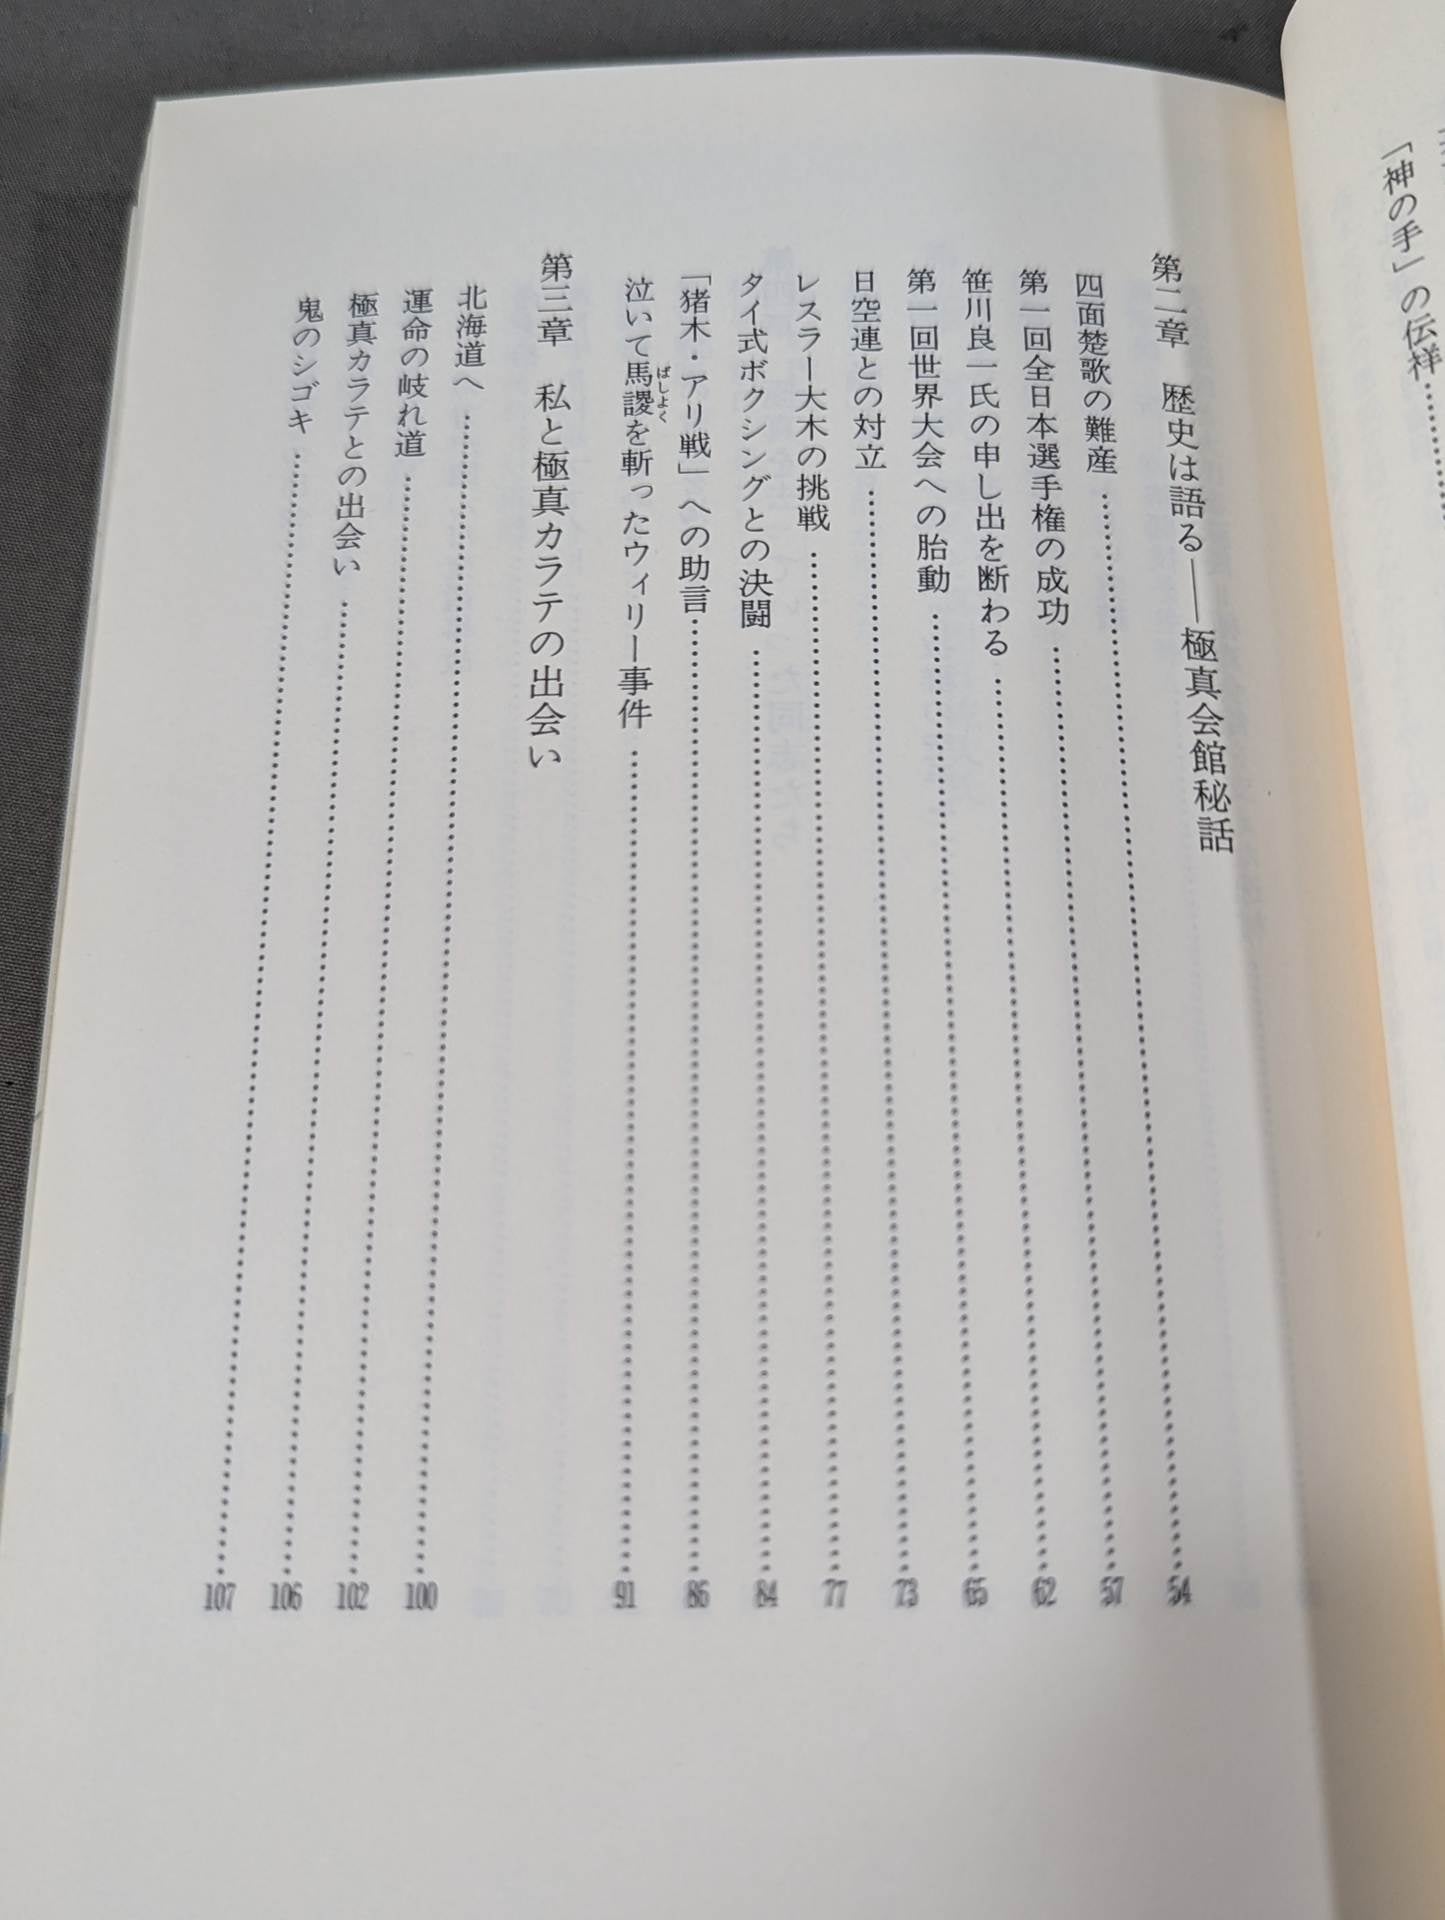 「神の手」の伝祥………
第二章　歴史は語る――極真会館秘話
四面楚歌の難産………54
第一回全日本選手権の成功………57
笹川良一氏の申し出を断わる………62
第一回世界大会への胎動………65
日空連との対立………73
レスラー大木の挑戦………77
タイ式ボクシングとの決闘………84
「猪木・アリ戦」への助言………86
泣いて馬謖を斬ったウィリー事件………91
ばしよく
第三章　私と極真カラテの出会い
北海道へ………100
運命の岐れ道………102
極真カラテとの出会い………106
鬼のシゴキ………107